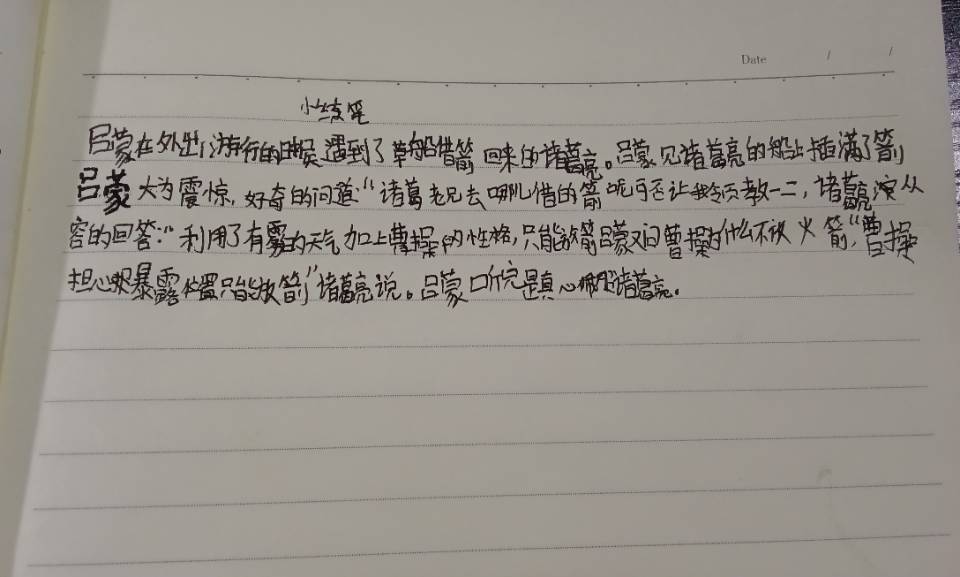 Date / /
小练笔
吕蒙在外出游行的时候遇到了草船借箭回来的诸葛亮。吕蒙见诸葛亮的船上插满了箭
吕蒙大为震惊，好奇的问道："诸葛老兄去哪儿借的箭呢可否让我领教一二，诸葛亮从
容的回答："利用了有雾的天气加上曹操的性格，只能放箭吕蒙又问曹操为什么不放火箭，"曹操
担心暴露位置只能放箭"诸葛亮说。吕蒙听完是真心佩服诸葛亮。